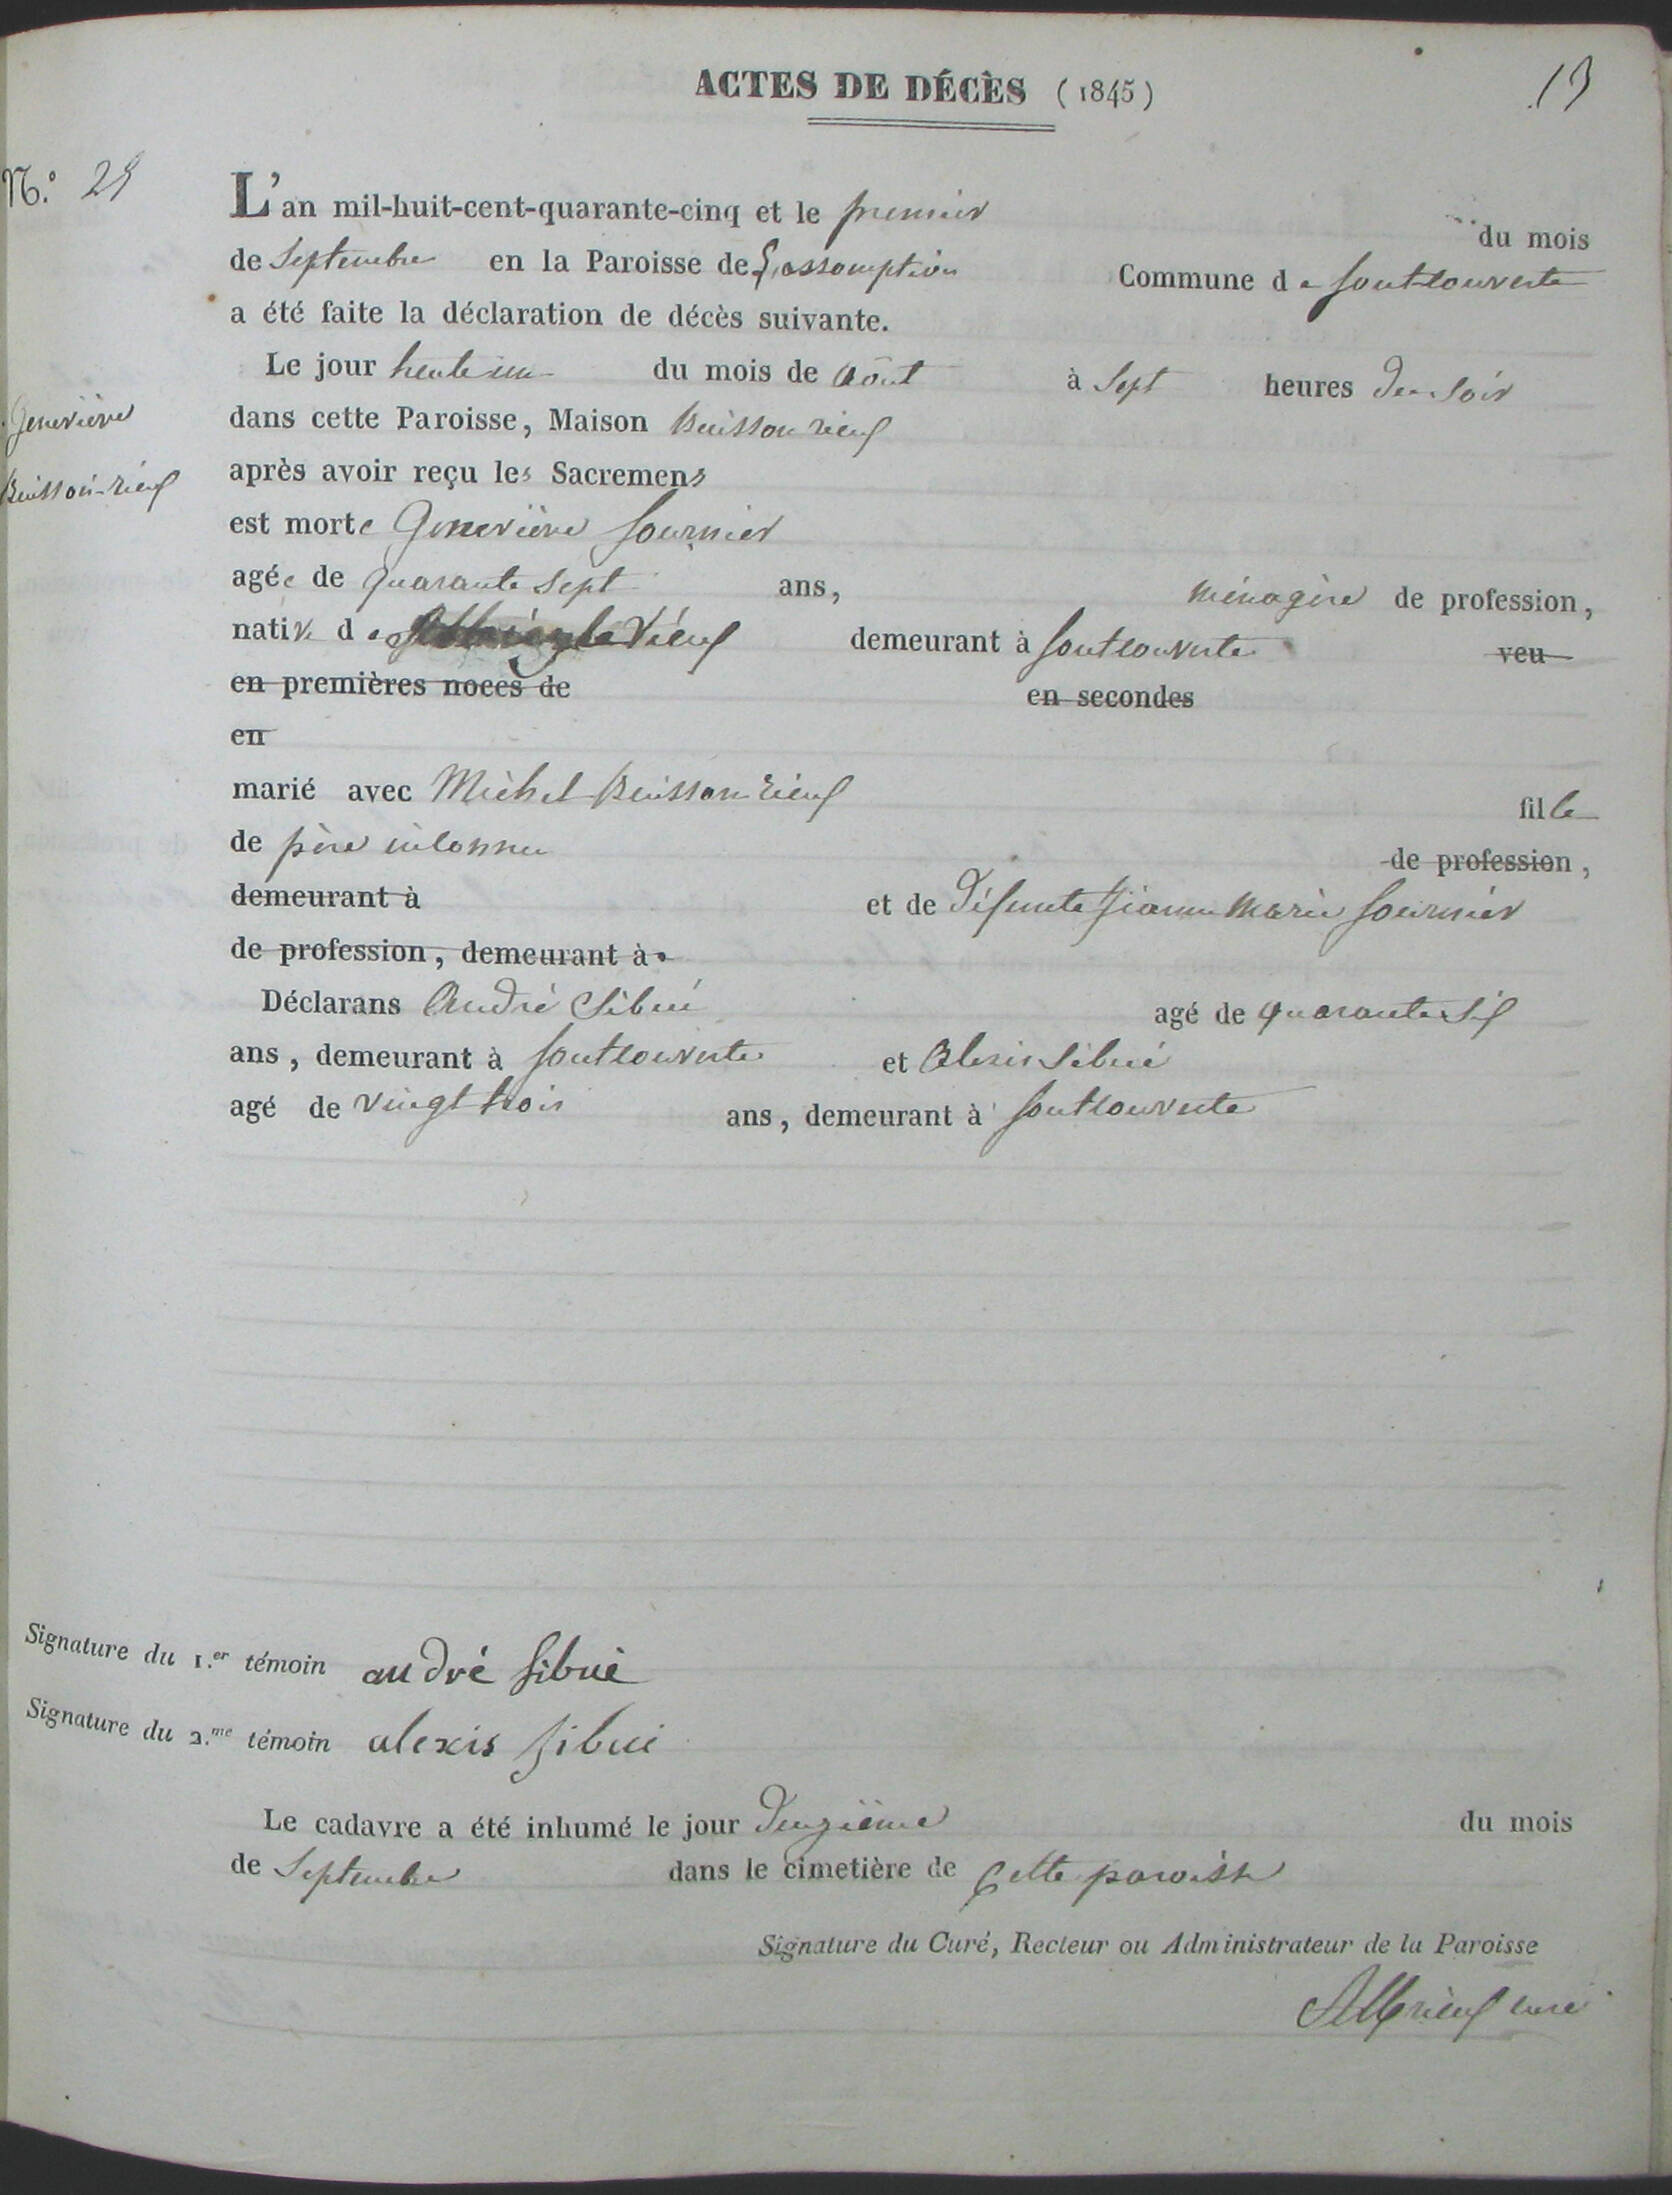 ACTES DE DÉCÈS (1845)
13
N.º 29
L'an mil-huit-cent-quarante-cinq et le premier du mois
de Septembre en la Paroisse de L'assomption Commune de fontcouverte
a été faite la déclaration de décès suivante.
Le jour trente un du mois de Août à Sept heures du Soir
Geneviève
dans cette Paroisse, Maison Buisson rieuf
Buisson-rieuf
après avoir reçu les Sacremens
est morte Geneviève fournier
agée de quarante Sept ans, ménagère de profession,
native de vieux demeurant à fontcouverte veu
en premières noces de en secondes
en
marié avec Michel Buisson rieuf fille
de père inconnu de profession,
demeurant à et de défunte Jeanne Marie fournier
de profession, demeurant à
Déclarans André Sibué agé de quarante Six
ans, demeurant à fontcouverte et Alexis Sibué
agé de vingt trois ans, demeurant à fontcouverte
Signature du 1.er témoin andré Sibué
Signature du 2.me témoin alexis Sibué
Le cadavre a été inhumé le jour deuzième du mois
de Septembre dans le cimetière de cette paroisse
Signature du Curé, Recteur ou Administrateur de la Paroisse
curé